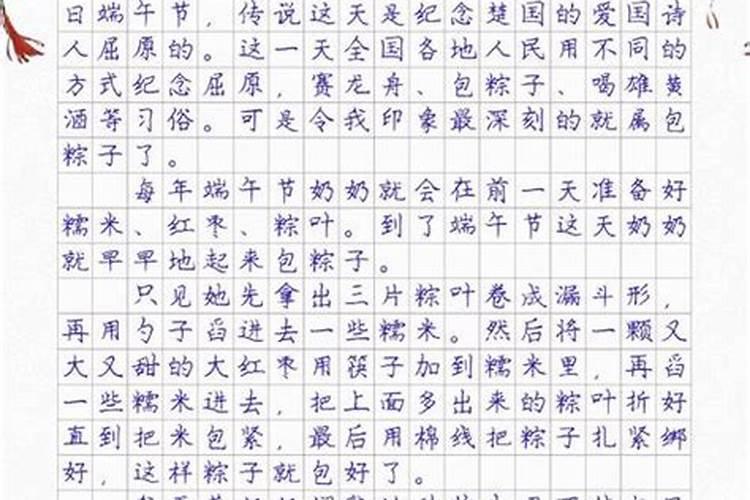 日端午节，传说这天是纪念楚国的爱国诗
人屈原的。这一天全国各地人民用不同的
方式纪念屈原，赛龙舟、包粽子、喝雄黄
酒等习俗。可是令我印象最深刻的就属包
粽子了。
每年端午节奶奶就会在前一天准备好
糯米、红枣、粽叶。到了端午节这天奶奶
就早早地起来包粽子。
只见她先拿出三片粽叶卷成漏斗形，
再用勺子舀进去一些糯米。然后将一颗又
大又甜的大红枣用筷子加到糯米里，再舀
一些糯米进去，把上面多出来的粽叶折好
直到把米包紧，最后用棉线把粽子扎紧绑
好，这样粽子就包好了。